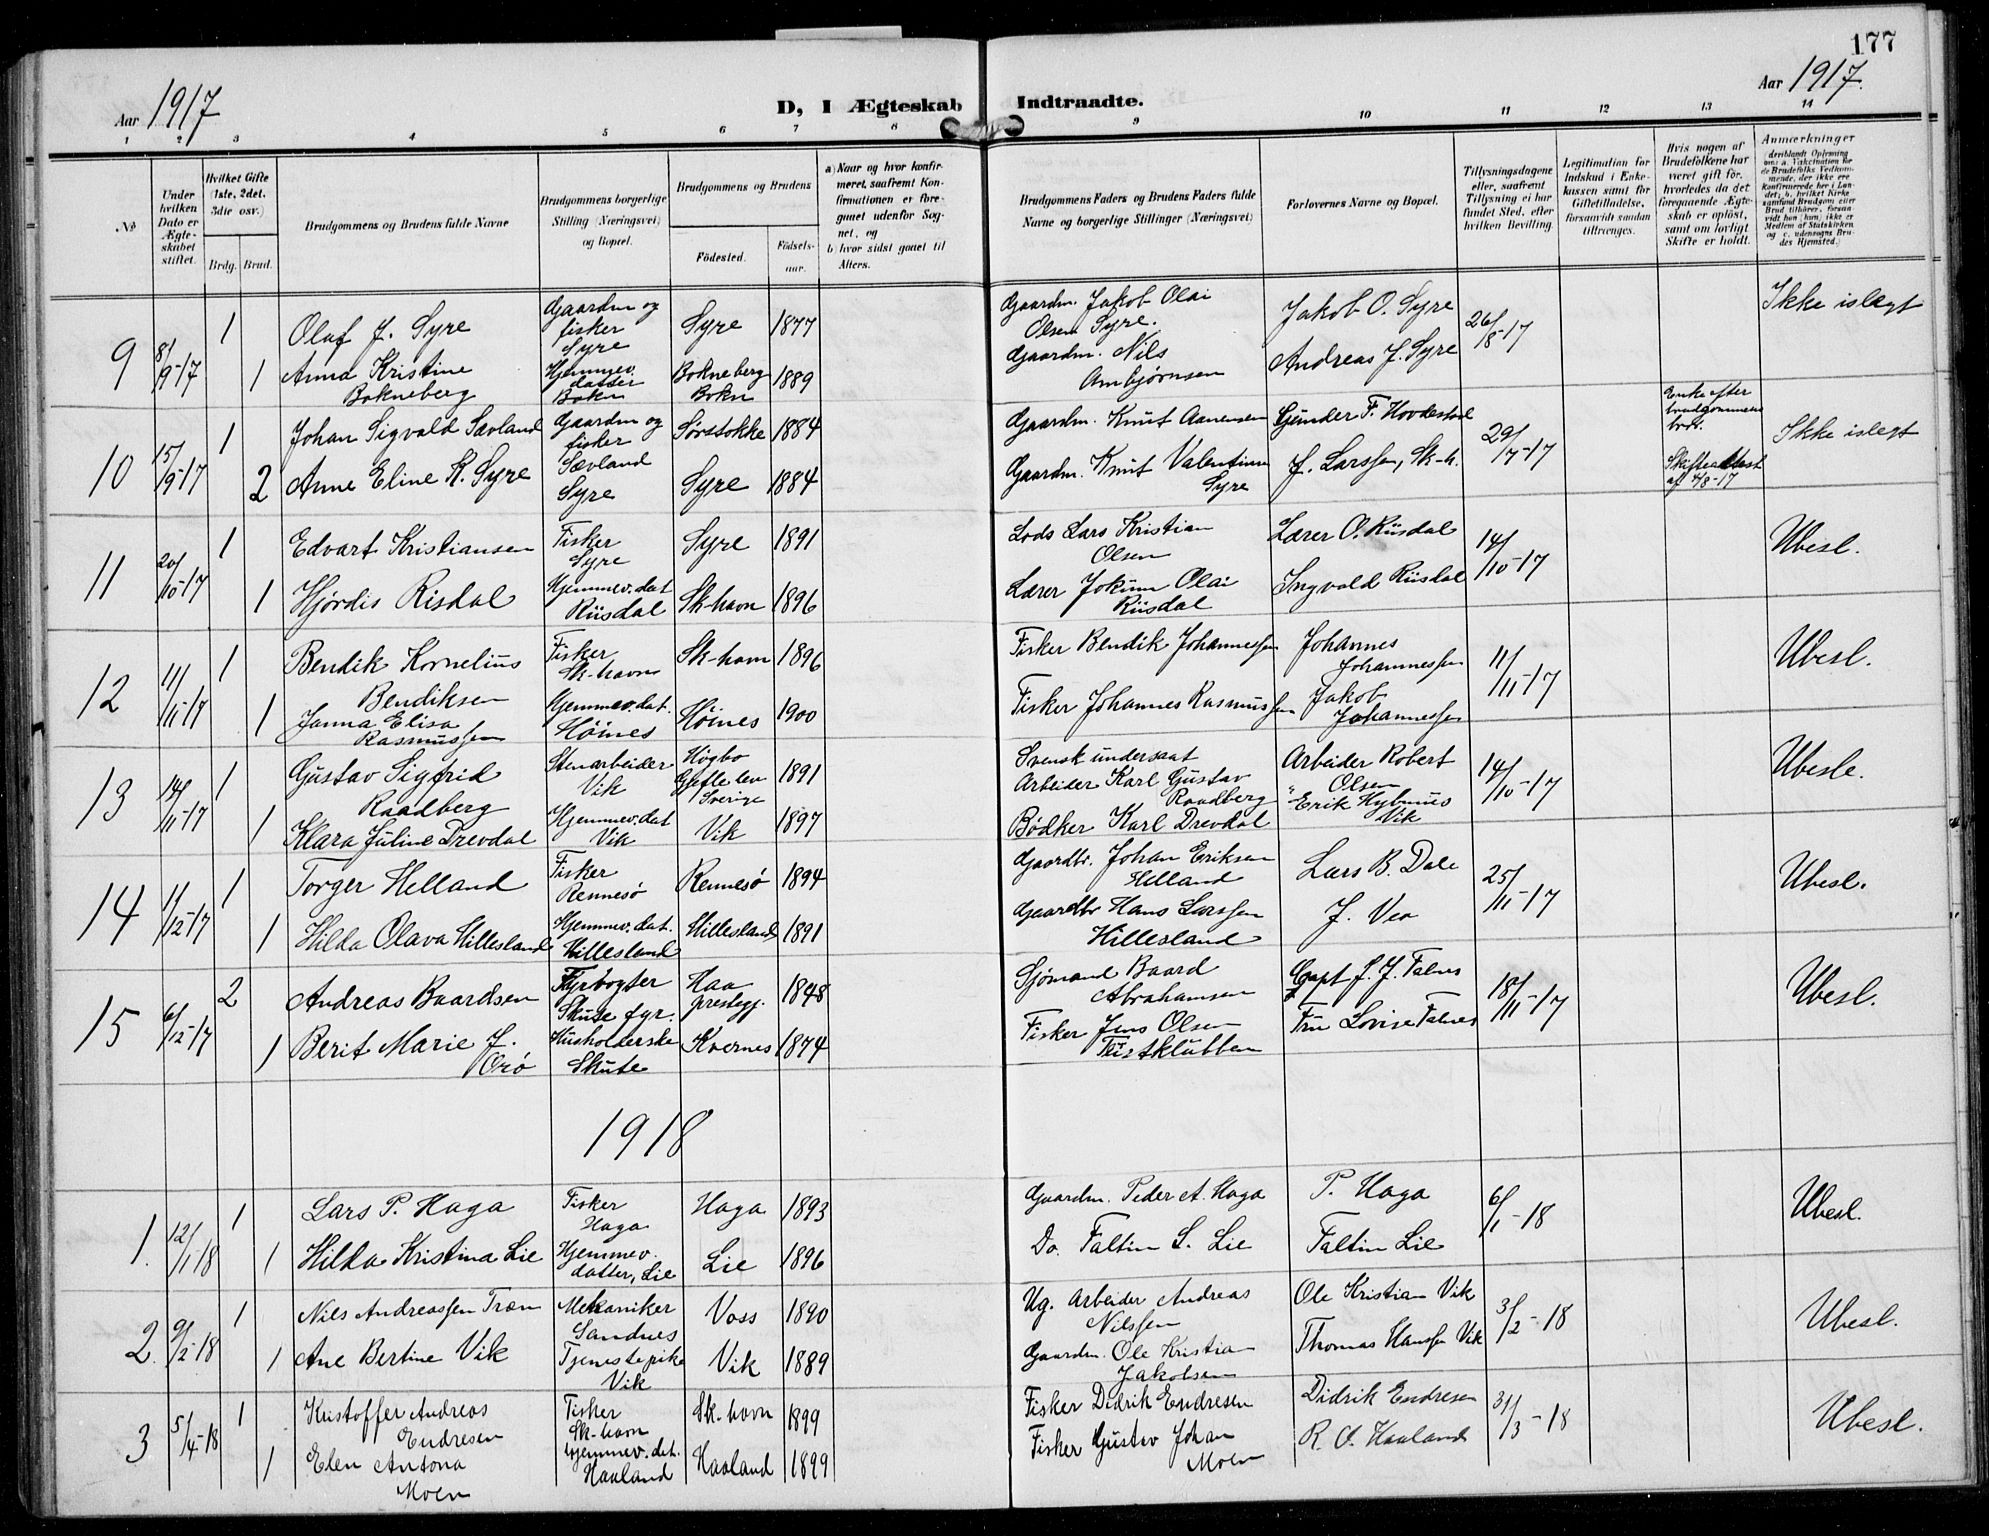 177
Aar 1917
D, I Ægteskab Indtraadte.
Aar 1917.
1 2 3 4 5 6 7 8 9 10 11 12 13 14
№
Under hvilken Dato er Ægteskabet stiftet.
Hvilket Gifte (1ste, 2det, 3die osv.)
Brdg. Brud.
Brudgommens og Brudens fulde Navne
Brudgommens borgerlige Stilling (Næringsvei) og Bopæl.
Brudgommens og Brudens
Födested.
Födselsaar.
a) Naar og hvor konfirmeret, saafremt Konfirmationen er foregaaet udenfor Sognet, og
b) hvor sidst gaaet til Alters.
Brudgommens Faders og Brudens Faders fulde Navne og borgerlige Stillinger (Næringsvei)
Forlovernes Navne og Bopæl.
Tillysningsdagene eller, saafremt Tillysning ei har fundet Sted, efter hvilken Bevilling.
Legitimation for Indskud i Enkekassen samt for Giftetilladelse, forsaavidt saadan tiltrænges.
Hvis nogen af Brudefolkene har været gift för, hvorledes da det foregaaende Ægteskab er oplöst, samt om lovligt Skifte er holdt.
Anmærkninger
9 8/9-17 1 Olaf J. Syre Gaardm og fisker Syre Syre 1877 Gaardm. Jakob Olai Olsen Syre. Jakob O. Syre 26/8-17 Ikke islegt
1 Anna Kristine Bokneberg Hjemmev. datter Bokn Bokneberg Bokn 1889 Gaardm. Nils Ambjørnsen Andreas J. Syre
10 15/9-17 1 Johan Sigvald Sævland Gaardm og fisker Sævland Sørstokke 1884 Gaardm. Knut Aanensen Gunder F. Hovdestad 29/7-17 Enke efter brudgommens bror. Ikke islegt
2 Anne Eline K. Syre Syre Syre 1884 Gaardm. Knut Valentinsen Syre J. Larssen, Sk-h. Skifteattest af 4/8-17
11 20/10-17 1 Edvart Kristiansen Fisker Syre Syre 1891 Lods Lars Kristian Olsen Lærer O. Riisdal 14/10-17 Ubesl.
1 Hjørdis Risdal Hjemmev. dat Riisdal Sk-havn 1896 Lærer Jokum Olai Riisdal Ingvald Riisdal
12 11/11-17 1 Bendik Kornelius Bendiksen Fisker Sk-havn Sk-havn 1896 Fisker Bendik Johannessen Johannes Johannessen 11/11-17 Ubesl.
1 Janna Elisa Rasmussen Hjemmev. dat. Höines Höines 1900 Fisker Johannes Rasmussen Jakob Johannessen
13 14/11-17 1 Gustav Sigfrid Raadberg Stenarbeider Vik Högbo Gefle len Sverige 1891 Svensk undersaat Arbeider Karl Gustav Raadberg Arbeider Robert Olsen 14/10-17 Ubesl.
1 Klara Juline Drevdal Hjemmev. dat Vik Vik 1897 Bødker Karl Drevdal " Erik Vik
14 1/12-17 1 Torger Helland Fisker Rennesø Rennesø 1894 Gaardbr. Johan Eriksen Helland Lars B. Dale 25/11-17 Ubesl.
1 Hilda Olava Hillesland Hjemmev. dat. Hillesland Hillesland 1891 Gaardbr Hans Larssen Hillesland J. Vea
15 6/12-17 2 Andreas Baardsen Fyrvogter Skute fyr. Haa prestegj. 1848 Sjömand Baard Abrahamsen Capt J. J. Falnes 18/11-17 Ubesl.
1 Berit Marie J. Orö Husholderske Skute Kvernes 1874 Fisker Jens Olsen Fru Lovise Falnes
1918
1. 12/1-18 1 Lars P. Haga Fisker Haga Haga 1893 Gaardm. Peder A. Haga P. Haga 6/1-18 Ubesl.
1 Hilda Kristina Lie Hjemmev. datter, Lie Lie 1896 Do. Faltin S. Lie Faltin Lie
2. 9/2-18 1 Nils Andreassen Træn Mekaniker Sandnes Voss 1890 Ug. Arbeider Andreas Nilssen Ole Kristian Vik 3/2-18 Ubesl.
1 Ane Bertine Vik Tjenestepike Vik Vik 1889 Gaardm. Ole Kristian Jakobsen Thomas Hanssen Vik
3 5/4-18 1 Kristoffer Andreas Endresen Fisker Sk-havn Sk-havn 1899 Fisker Didrik Endresen Didrik Endresen 31/3-18 Ubesl.
1 Elen Antona Moen Hjemmev. dat. Haaland Haaland 1899 Fisker Gustav Johan Moen R. O. Haaland